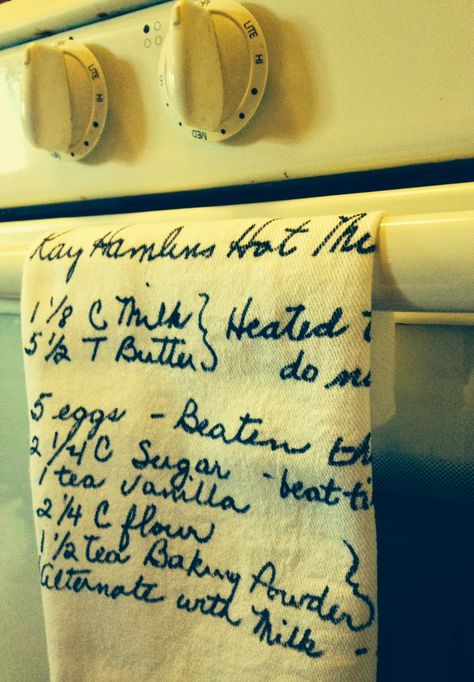 LITE
HI
LITE
HI
MED
Kay Hamlins Hot
1 1/8 C Milk } Heated
5 1/2 T Butter } do
5 eggs - Beaten
2 1/4 C Sugar - beat
1 tea Vanilla
2 1/4 C flour
1 1/2 tea Baking Powder }
Alternate with Milk -